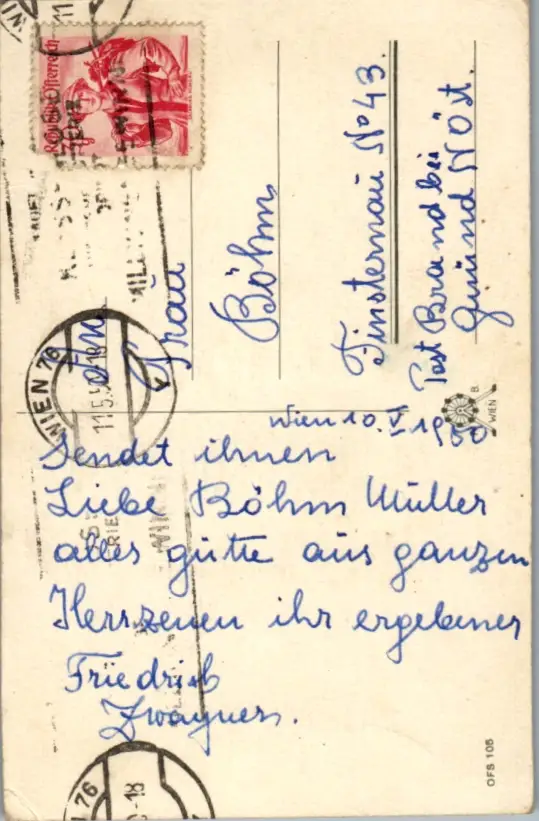 Wien 10. V 1950
Sendet ihnen
Liebe Böhm Müller
alles gutte aus ganzen
Herrzenen ihr ergebener
Friedrich
An
Frau
Böhm
Finsternau No 43.
Post Brand bei
Gmünd NÖst.
Republik Österreich
WIEN 76
11.5.5
-18
WIEN 76
-18
B.
WIEN
OFS 105